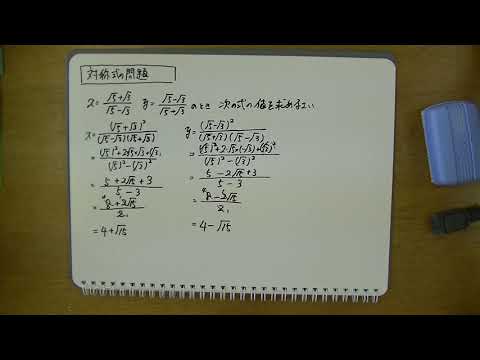 対称式の問題
x = (√5+√3)/(√5-√3) y = (√5-√3)/(√5+√3) のとき 次の式の値を求めなさい
x = (√5+√3)²/((√5-√3)(√5+√3))
= ((√5)²+2·√5×√3+(√3)²)/((√5)²-(√3)²)
= (5+2√15+3)/(5-3)
= (8+2√15)/2
= 4+√15
y = (√5-√3)²/((√5+√3)(√5-√3))
= ((√5)²+2·√5×(-√3)+(√3)²)/((√5)²-(√3)²)
= (5-2√15+3)/(5-3)
= (8-2√15)/2
= 4-√15